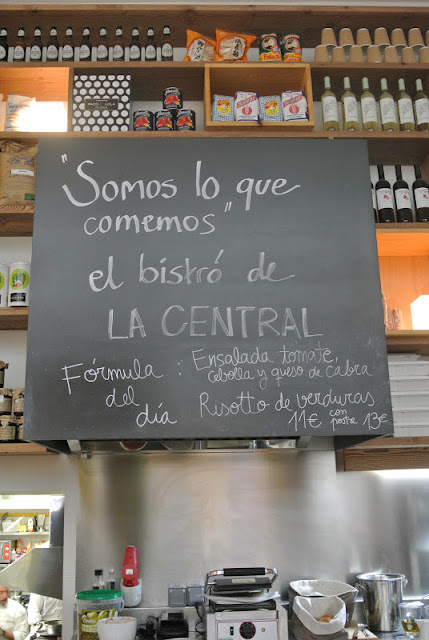 "Somos lo que
comemos"
el bistró de
LA CENTRAL
Fórmula :
del
día
Ensalada tomate,
cebolla y queso de cabra
Risotto de verduras
11€ con postre 13€